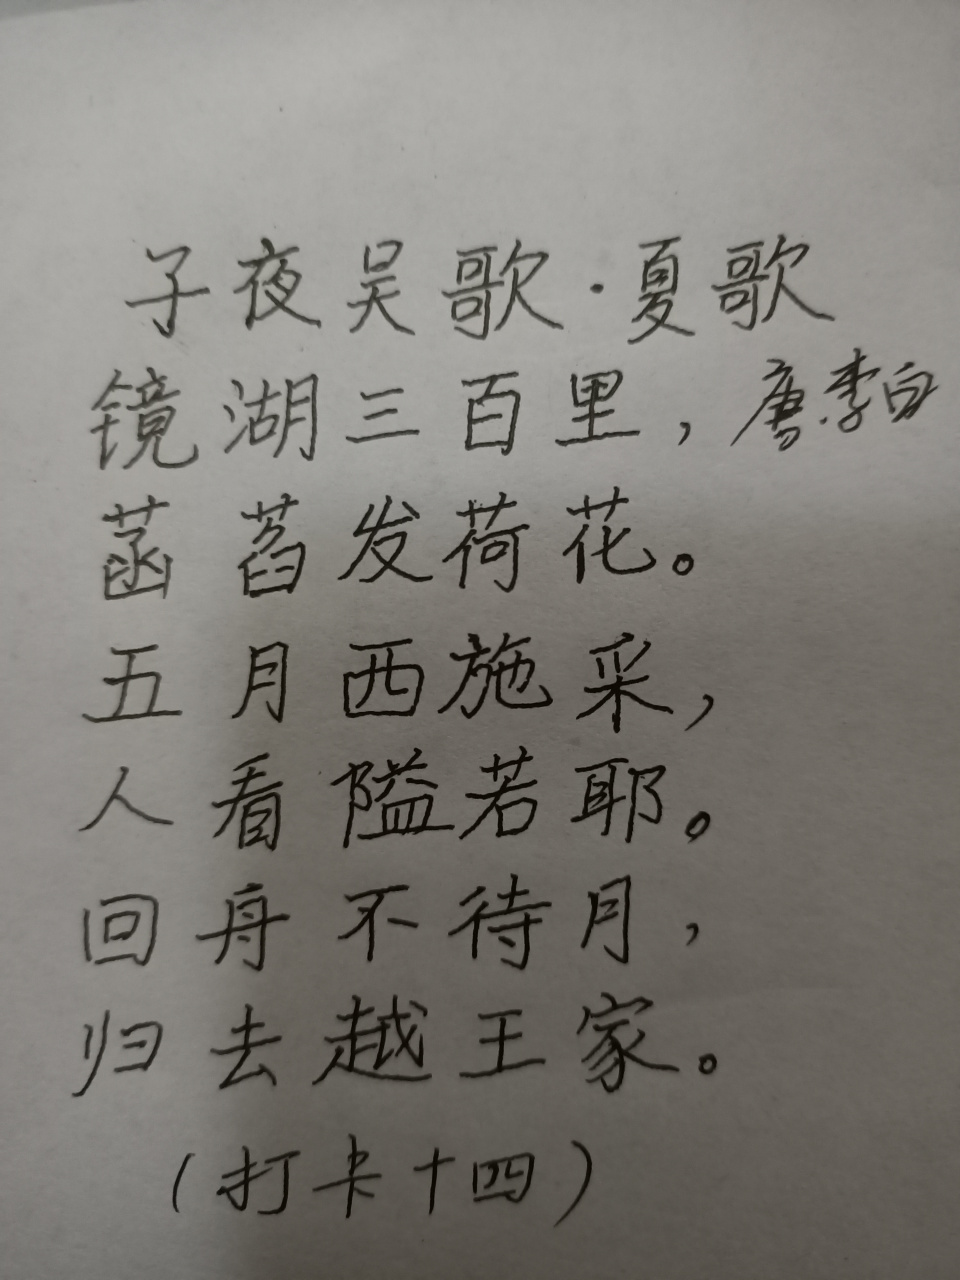 子夜吴歌·夏歌
镜湖三百里，唐.李白
菡萏发荷花。
五月西施采，
人看隘若耶。
回舟不待月，
归去越王家。
（打卡十四）